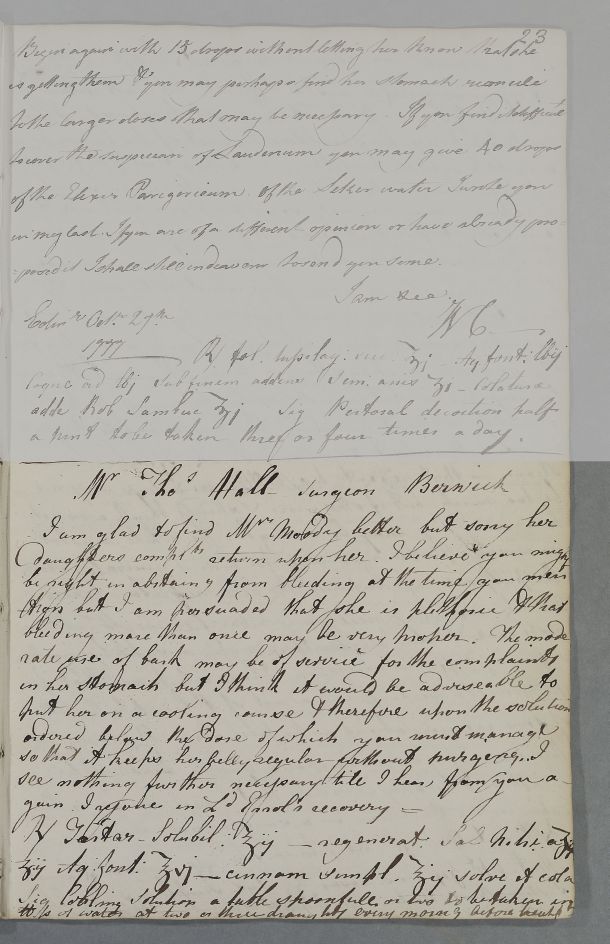 23
Begin again with 15 drops without letting her know that she
is getting them & you may perhaps find her stomach reconcile
to the larger doses that may be necessary. If you find it difficult
to cover the suspicion of Laudanum you may give 40 drops
of the Elixir Paregoricum. Of the Selzer water I wrote you
in my last. If you are of a different opinion or have already pro=
=posed it I shall still endeavour to send you some.
I am &ca.
WC
Edinr. Octr. 29th
1777
℞ fol. tussilag. ʒj Aq font. lbij
coque ad lbj sub finem adden Sem. anis ʒs - Colaturæ
adde Rob Sambuc ʒj Sig Pectoral decoction half
a pint to be taken three or four times a day.
Mr Thos Hall Surgeon Berwick
I am glad to find Mrs Moody better but sorry her
Daughters complts return upon her. I believe you might
be right in abstaing from bleeding at the time you men
tion but I am persuaded that she is plethoric & that
bleeding more than once may be very proper. The mode
rate use of bark may be of service for the complaints
in her stomach but I think it would be adviseable to
put her on a cooling course & therefore upon the solution
ordered below the dose of which you must manage
so that it keeps her belly regular without purging. I
see nothing further necessary till I hear from you a-
gain. I rejoice in Ld Errol's recovery =
℞ Tartar. Solubil. ʒij - regenerat. Sal Nitri
ʒij Aq font. ʒvj - cinnam simpl. ʒij solve et cola
Sig Cooling Solution a table spoonfull or two to be taken in
of water at two or three draughts every morng before breakft